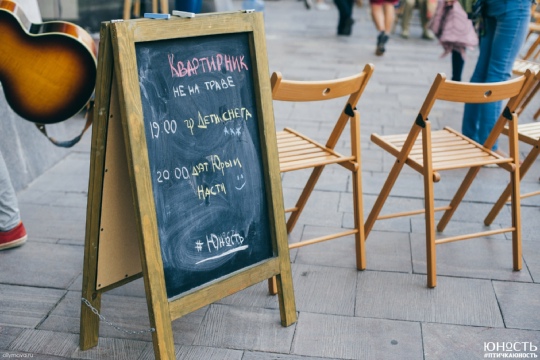 Квартирник
не на траве
19:00 гр Дети снега
20:00 дуэт Юры и
Насти
#Юность
olymova.ru
ЮНОСТЬ
#ПТИЧКАЮНОСТЬ